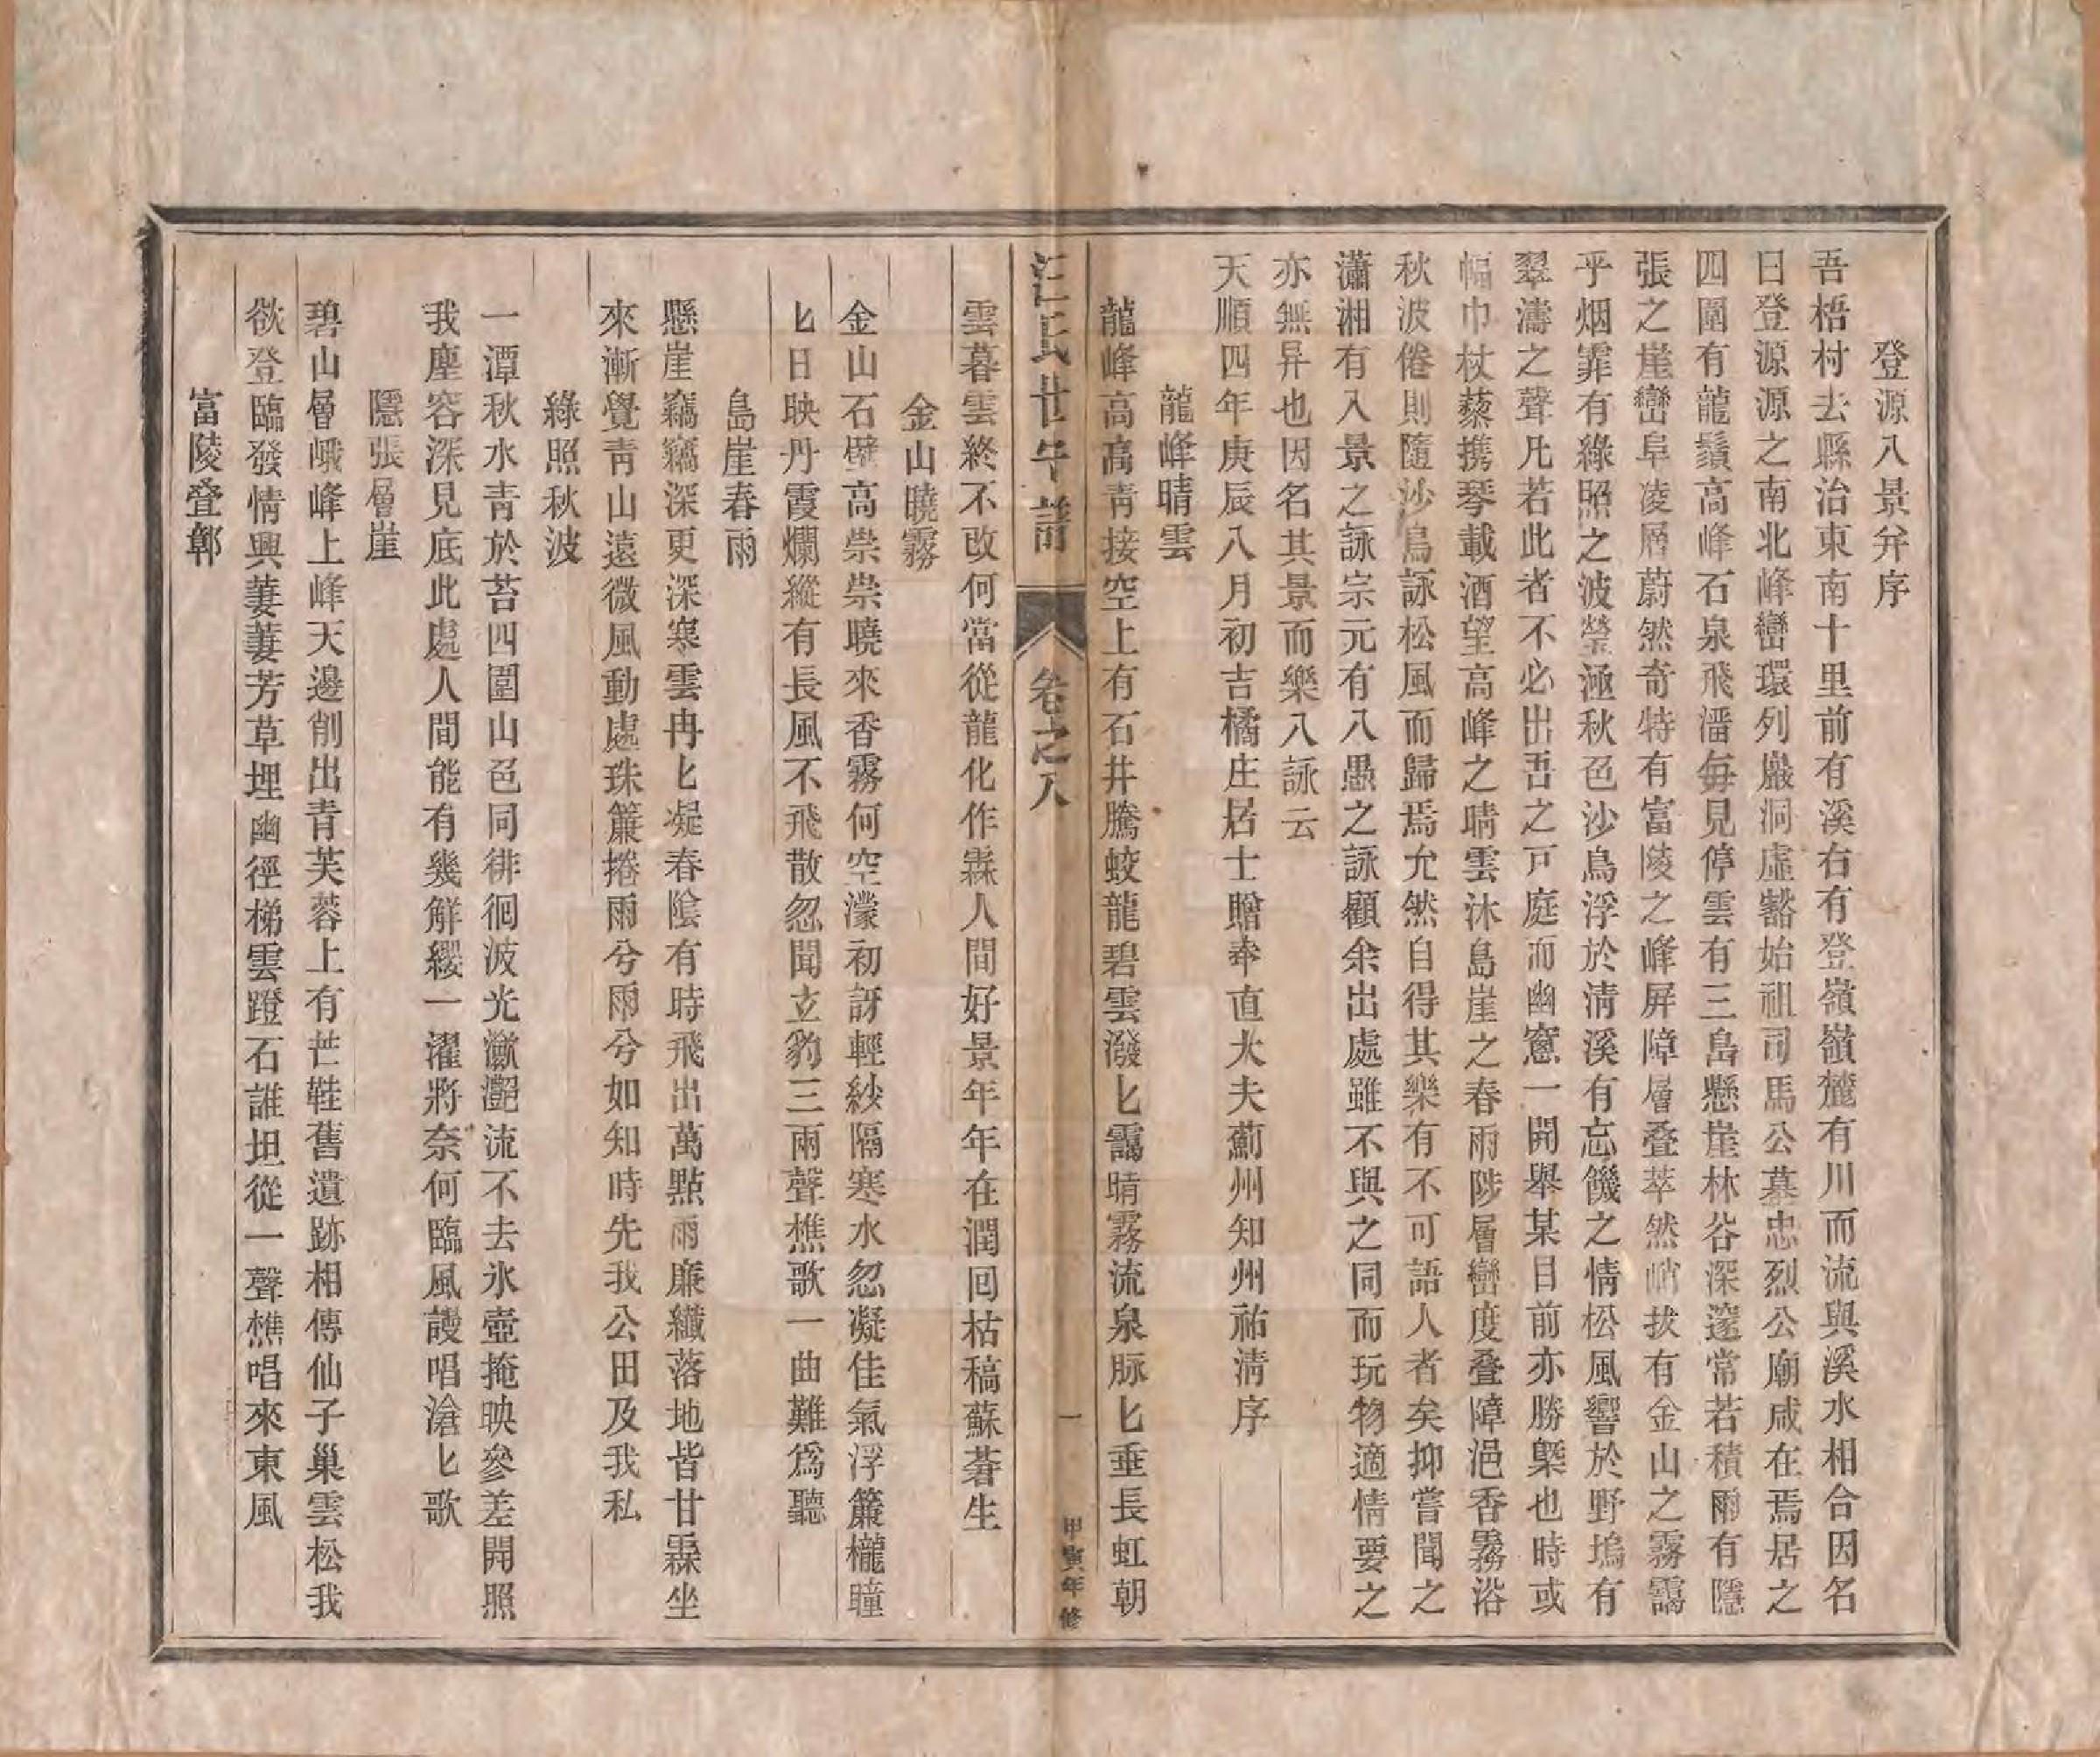 登源八景弁序
吾梧村去縣治東南十里前有溪右有登嶺嶺麓有川而流與溪水相合因名
日登源源之南北峰巒環列巖洞虛豁始祖司馬公墓忠烈公廟咸在焉居之
四圍有龍鬚高峰石泉飛潘每見停雲有三島懸崖林谷深邃常若積雨有隱
張之崖巒阜凌層蔚然奇特有富陵之峰屏障層叠萃然峭拔有金山之霧靄
乎烟霏有綠照之波瑩涵秋色沙鳥浮於淸溪有忘饑之情松風響於野塢有
翠濤之聲凡若此者不必出吾之戸庭而幽窻一開舉某目前亦勝槩也時或
幅巾杖藜携琴載酒望高峰之晴雲沐島崖之春雨陟層巒度叠障浥香霧浴
秋波倦則隨沙鳥詠松風而歸焉允然自得其樂有不可語人者矣抑嘗聞之
瀟湘有入景之詠宗元有八愚之詠顧余出處雖不與之同而玩物適情要之
亦無异也因名其景而樂八詠云
天順四年庚辰八月初吉橘庄居士贈奉直大夫薊州知州祐淸序
龍峰晴雲
龍峰高高靑接空上有石井騰蛟龍碧雲潑匕靄晴霧流泉脉匕垂長虹朝
汪氏世守譜
卷之八
一
甲寅年修
雲暮雲終不改何當從龍化作霖人間好景年年在潤回枯稿蘇蒼生
金山曉霧
金山石壁高崇崇曉來香霧何空濛初訝輕紗隔寒水忽凝佳氣浮簾櫳曈
匕日映丹霞爛縱有長風不飛散忽聞立豹三兩聲樵歌一曲難爲聽
島崖春雨
懸崖竊竊深更深寒雲冉匕凝春陰有時飛出萬點雨廉纖落地皆甘霖坐
來漸覺靑山遠微風動處珠簾捲雨兮雨兮如知時先我公田及我私
綠照秋波
一潭秋水靑於苔四圍山色同徘徊波光瀲灔流不去氷壺掩映參差開照
我塵容深見底此處人間能有幾觧纓一濯將奈何臨風謾唱滄匕歌
隱張層崖
碧山層峨峰上峰天邊削出靑芙蓉上有芒鞋舊遺跡相傳仙子巢雲松我
欲登臨發情興萋萋芳草埋幽徑梯雲蹬石誰坦從一聲樵唱來東風
富陵叠鄣